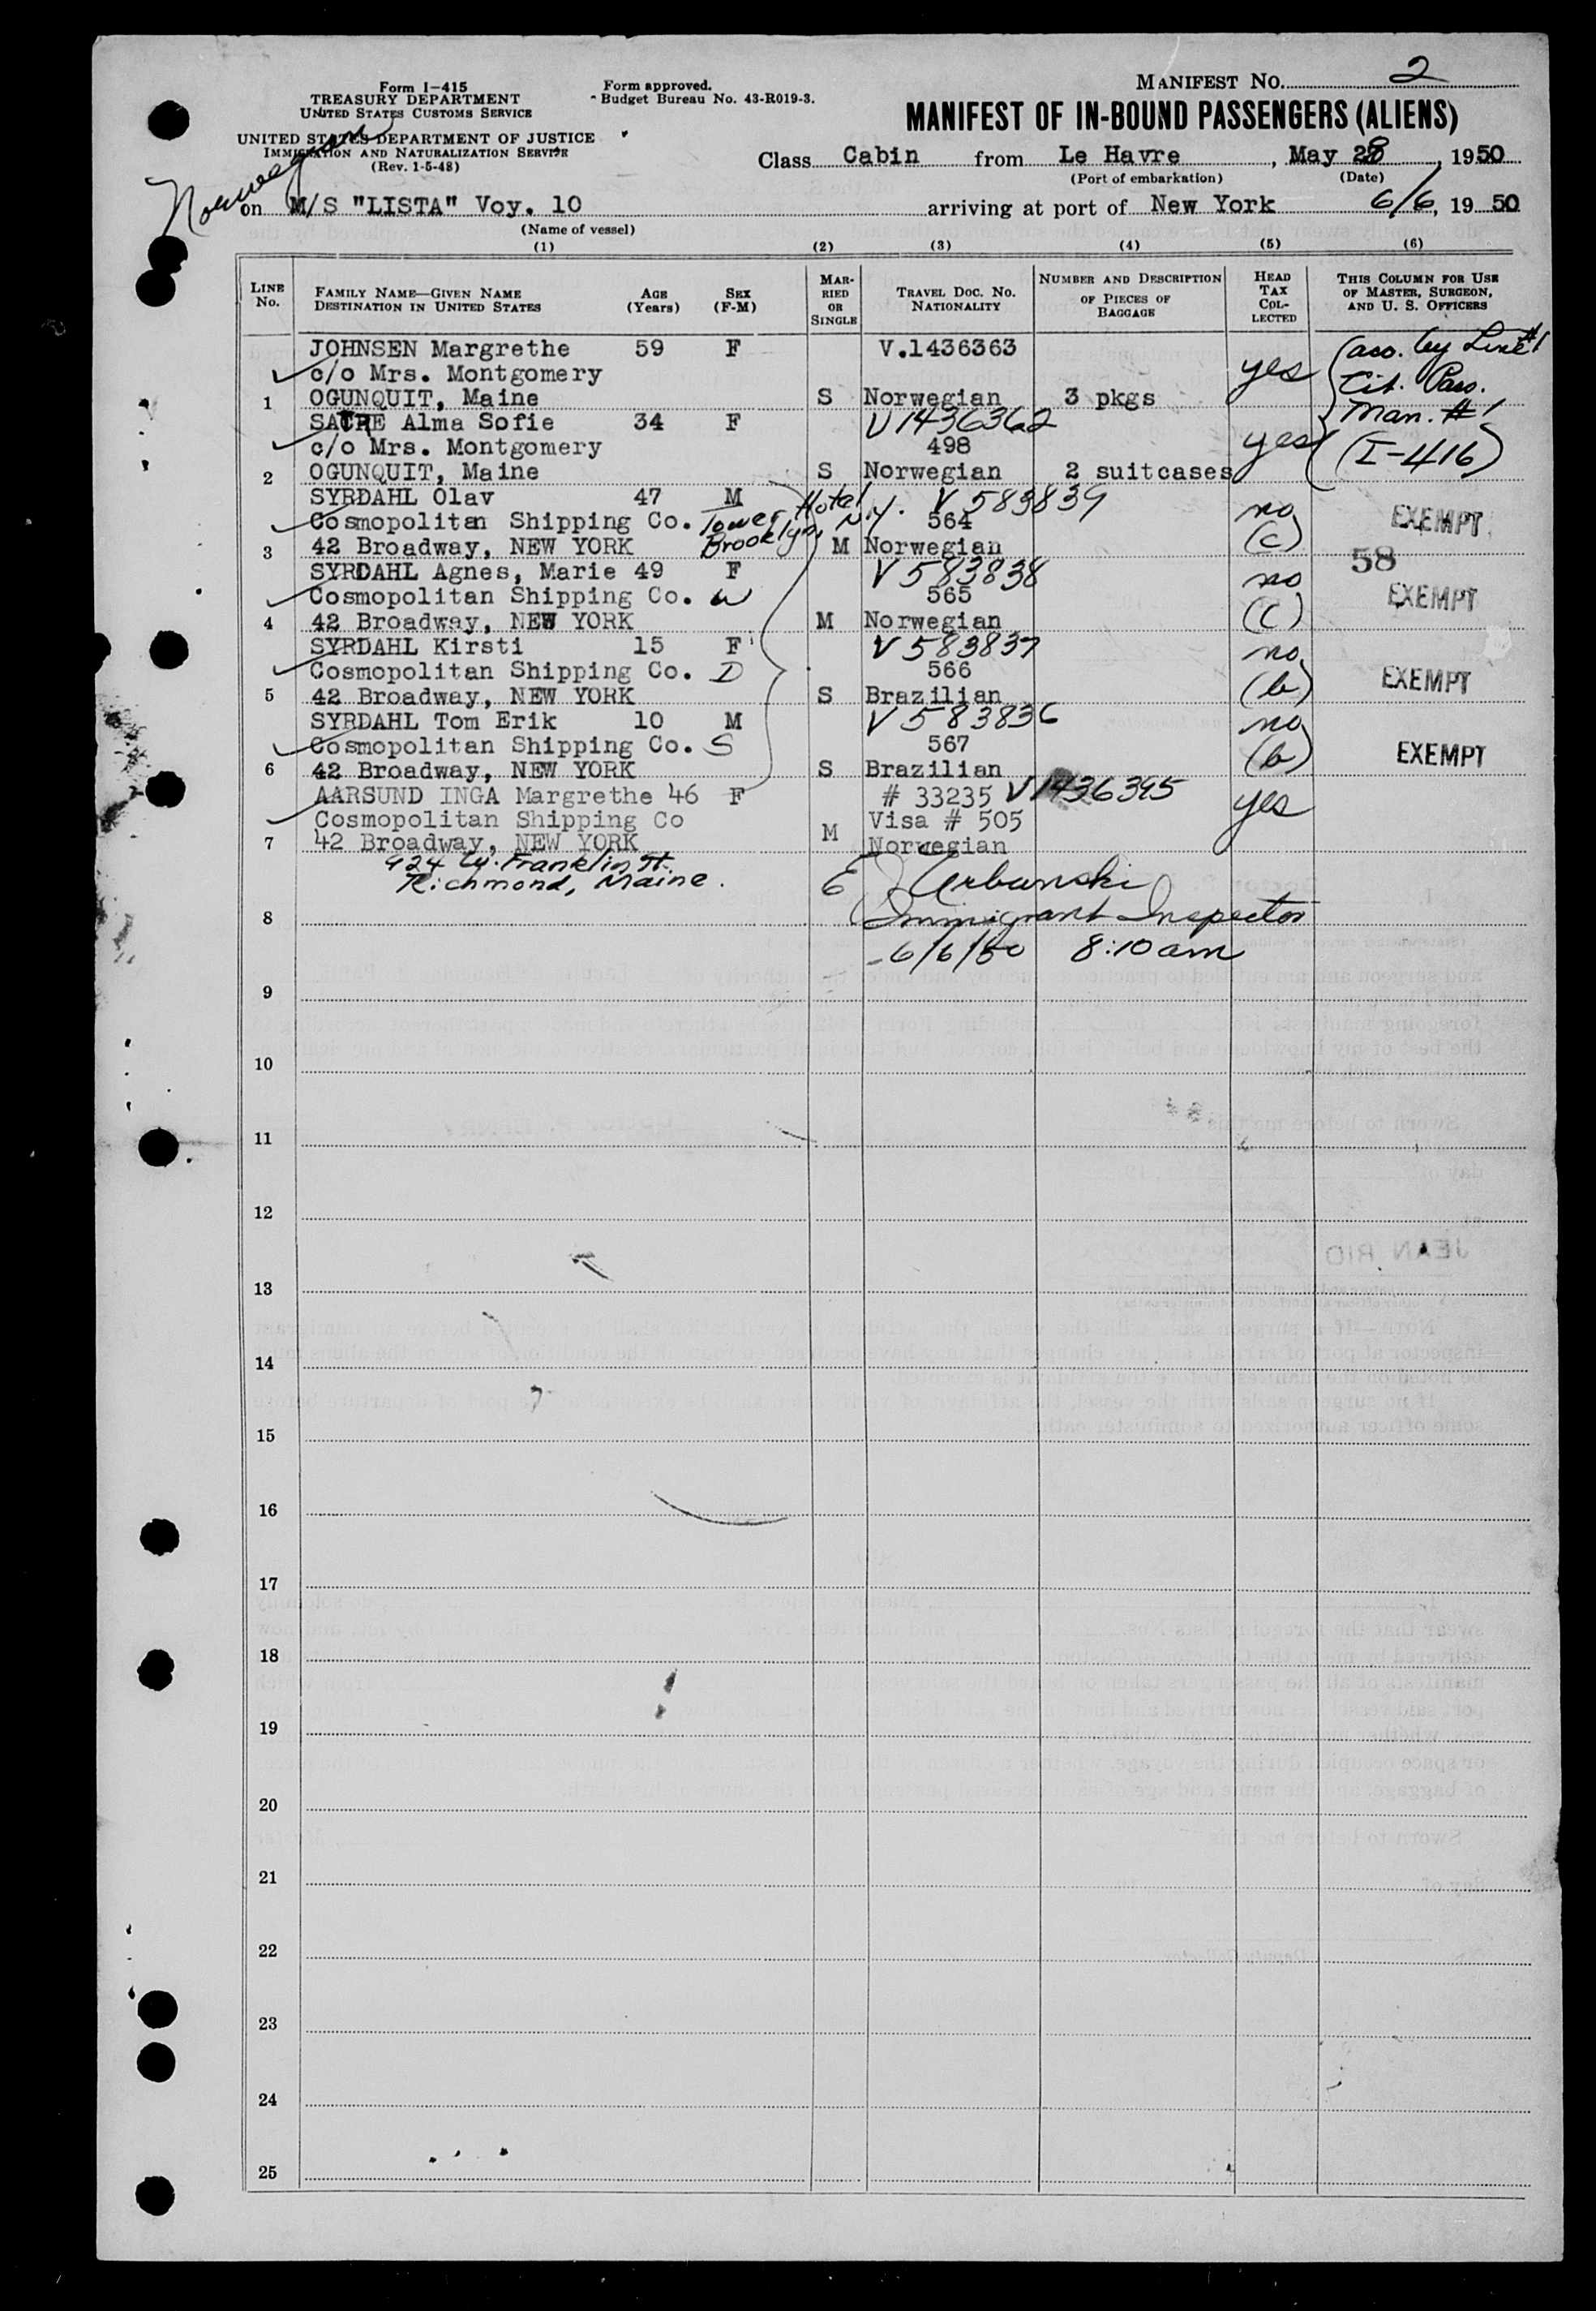 Form I-415
TREASURY DEPARTMENT
UNITED STATES CUSTOMS SERVICE
UNITED STATES DEPARTMENT OF JUSTICE
IMMIGRATION AND NATURALIZATION SERVICE
(Rev. 1-5-48)
Form approved.
Budget Bureau No. 43-R019-3.
MANIFEST NO. 2
MANIFEST OF IN-BOUND PASSENGERS (ALIENS)
Class Cabin from Le Havre, May 28, 1950
(Port of embarkation) (Date)
Norwegian
on M/S "LISTA" Voy. 10 arriving at port of New York 6/6, 1950
(Name of vessel)
(1) (2) (3) (4) (5) (6)
LINE No.
FAMILY NAME—GIVEN NAME
DESTINATION IN UNITED STATES
AGE (Years)
SEX (F-M)
MARRIED OR SINGLE
TRAVEL DOC. NO.
NATIONALITY
NUMBER AND DESCRIPTION OF PIECES OF BAGGAGE
HEAD TAX COLLECTED
THIS COLUMN FOR USE OF MASTER, SURGEON, AND U. S. OFFICERS
JOHNSEN Margrethe 59 F V.1436363 (acc. by Line #1
c/o Mrs. Montgomery yes Cit. Pass.
1 OGUNQUIT, Maine S Norwegian 3 pkgs Man. #1
SATRE Alma Sofie 34 F V1436362
c/o Mrs. Montgomery 498 yes (I-416)
2 OGUNQUIT, Maine S Norwegian 2 suitcases
SYRDAHL Olav 47 M Hotel V 583839
Cosmopolitan Shipping Co. Tower N.Y. 564 no EXEMPT
3 42 Broadway, NEW YORK Brooklyn, M Norwegian (c)
58
SYRDAHL Agnes, Marie 49 F V 583838 no
Cosmopolitan Shipping Co. W 565 EXEMPT
4 42 Broadway, NEW YORK M Norwegian (c)
SYRDAHL Kirsti 15 F V 583837 no
Cosmopolitan Shipping Co. D 566 EXEMPT
5 42 Broadway, NEW YORK S Brazilian (b)
SYRDAHL Tom Erik 10 M V 583836 no
Cosmopolitan Shipping Co. S 567 EXEMPT
6 42 Broadway, NEW YORK S Brazilian (b)
AARSUND INGA Margrethe 46 F # 33235 V1436395 yes
Cosmopolitan Shipping Co Visa # 505
7 42 Broadway, NEW YORK M Norwegian
924 W. Franklin St.
Richmond, Maine.
E J Urbanski
8 Immigrant Inspector
6/6/50 8:10 am
9
10
11
12
13
14
15
16
17
18
19
20
21
22
23
24
25